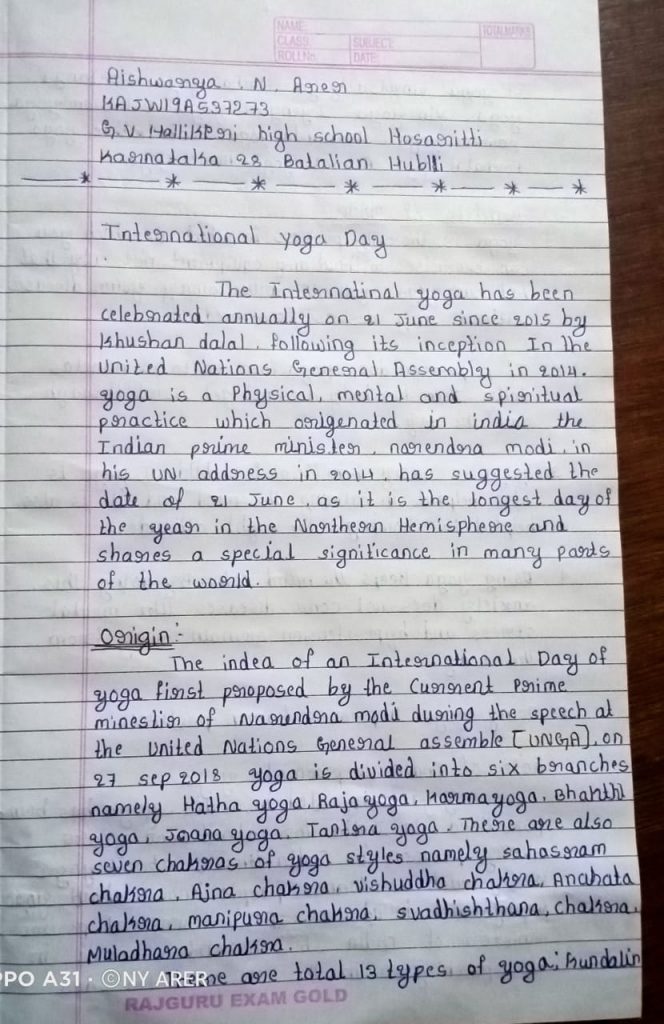 NAME
CLASS SUBJECT
ROLL No DATE
TOTAL MARKS
Aishwarya . N . Arer
KAJW19A537273
G. V. Hallikeri high school Hosaritti
Karnataka 28 Batalian Hublli
International yoga Day
The Internatinal yoga has been
celebrated annually on 21 June since 2015 by
khushan dalal. following its inception In the
United Nations General Assembly in 2014.
yoga is a Physical, mental and spiritual
practice which origenated in india the
Indian prime minister, narendra modi, in
his UN address in 2014, has suggested the
date of 21 June, as it is the longest day of
the year in the Narthern Hemisphere and
shares a special significance in many parts
of the world.
Origin :-
The indea of an International Day of
yoga first proposed by the Current Prime
minestir of Narundra modi during the speech at
the United Nations General assemble [UNGA], on
27 sep 2018 yoga is divided into six branches
namely Hatha yoga, Raja yoga, karma yoga, Bhakthi
yoga, Jnana yoga. Tantra yoga. There are also
seven chakras of yoga styles namely sahasram
chakra, Ajna chakra, vishuddha chakra, Anahata
chakra, manipura chakra, svadhishthana, chakra,
Muladhara chakra.
There are total 13 types of yoga; kundalin
PPO A31 · ©NY ARER
RAJGURU EXAM GOLD